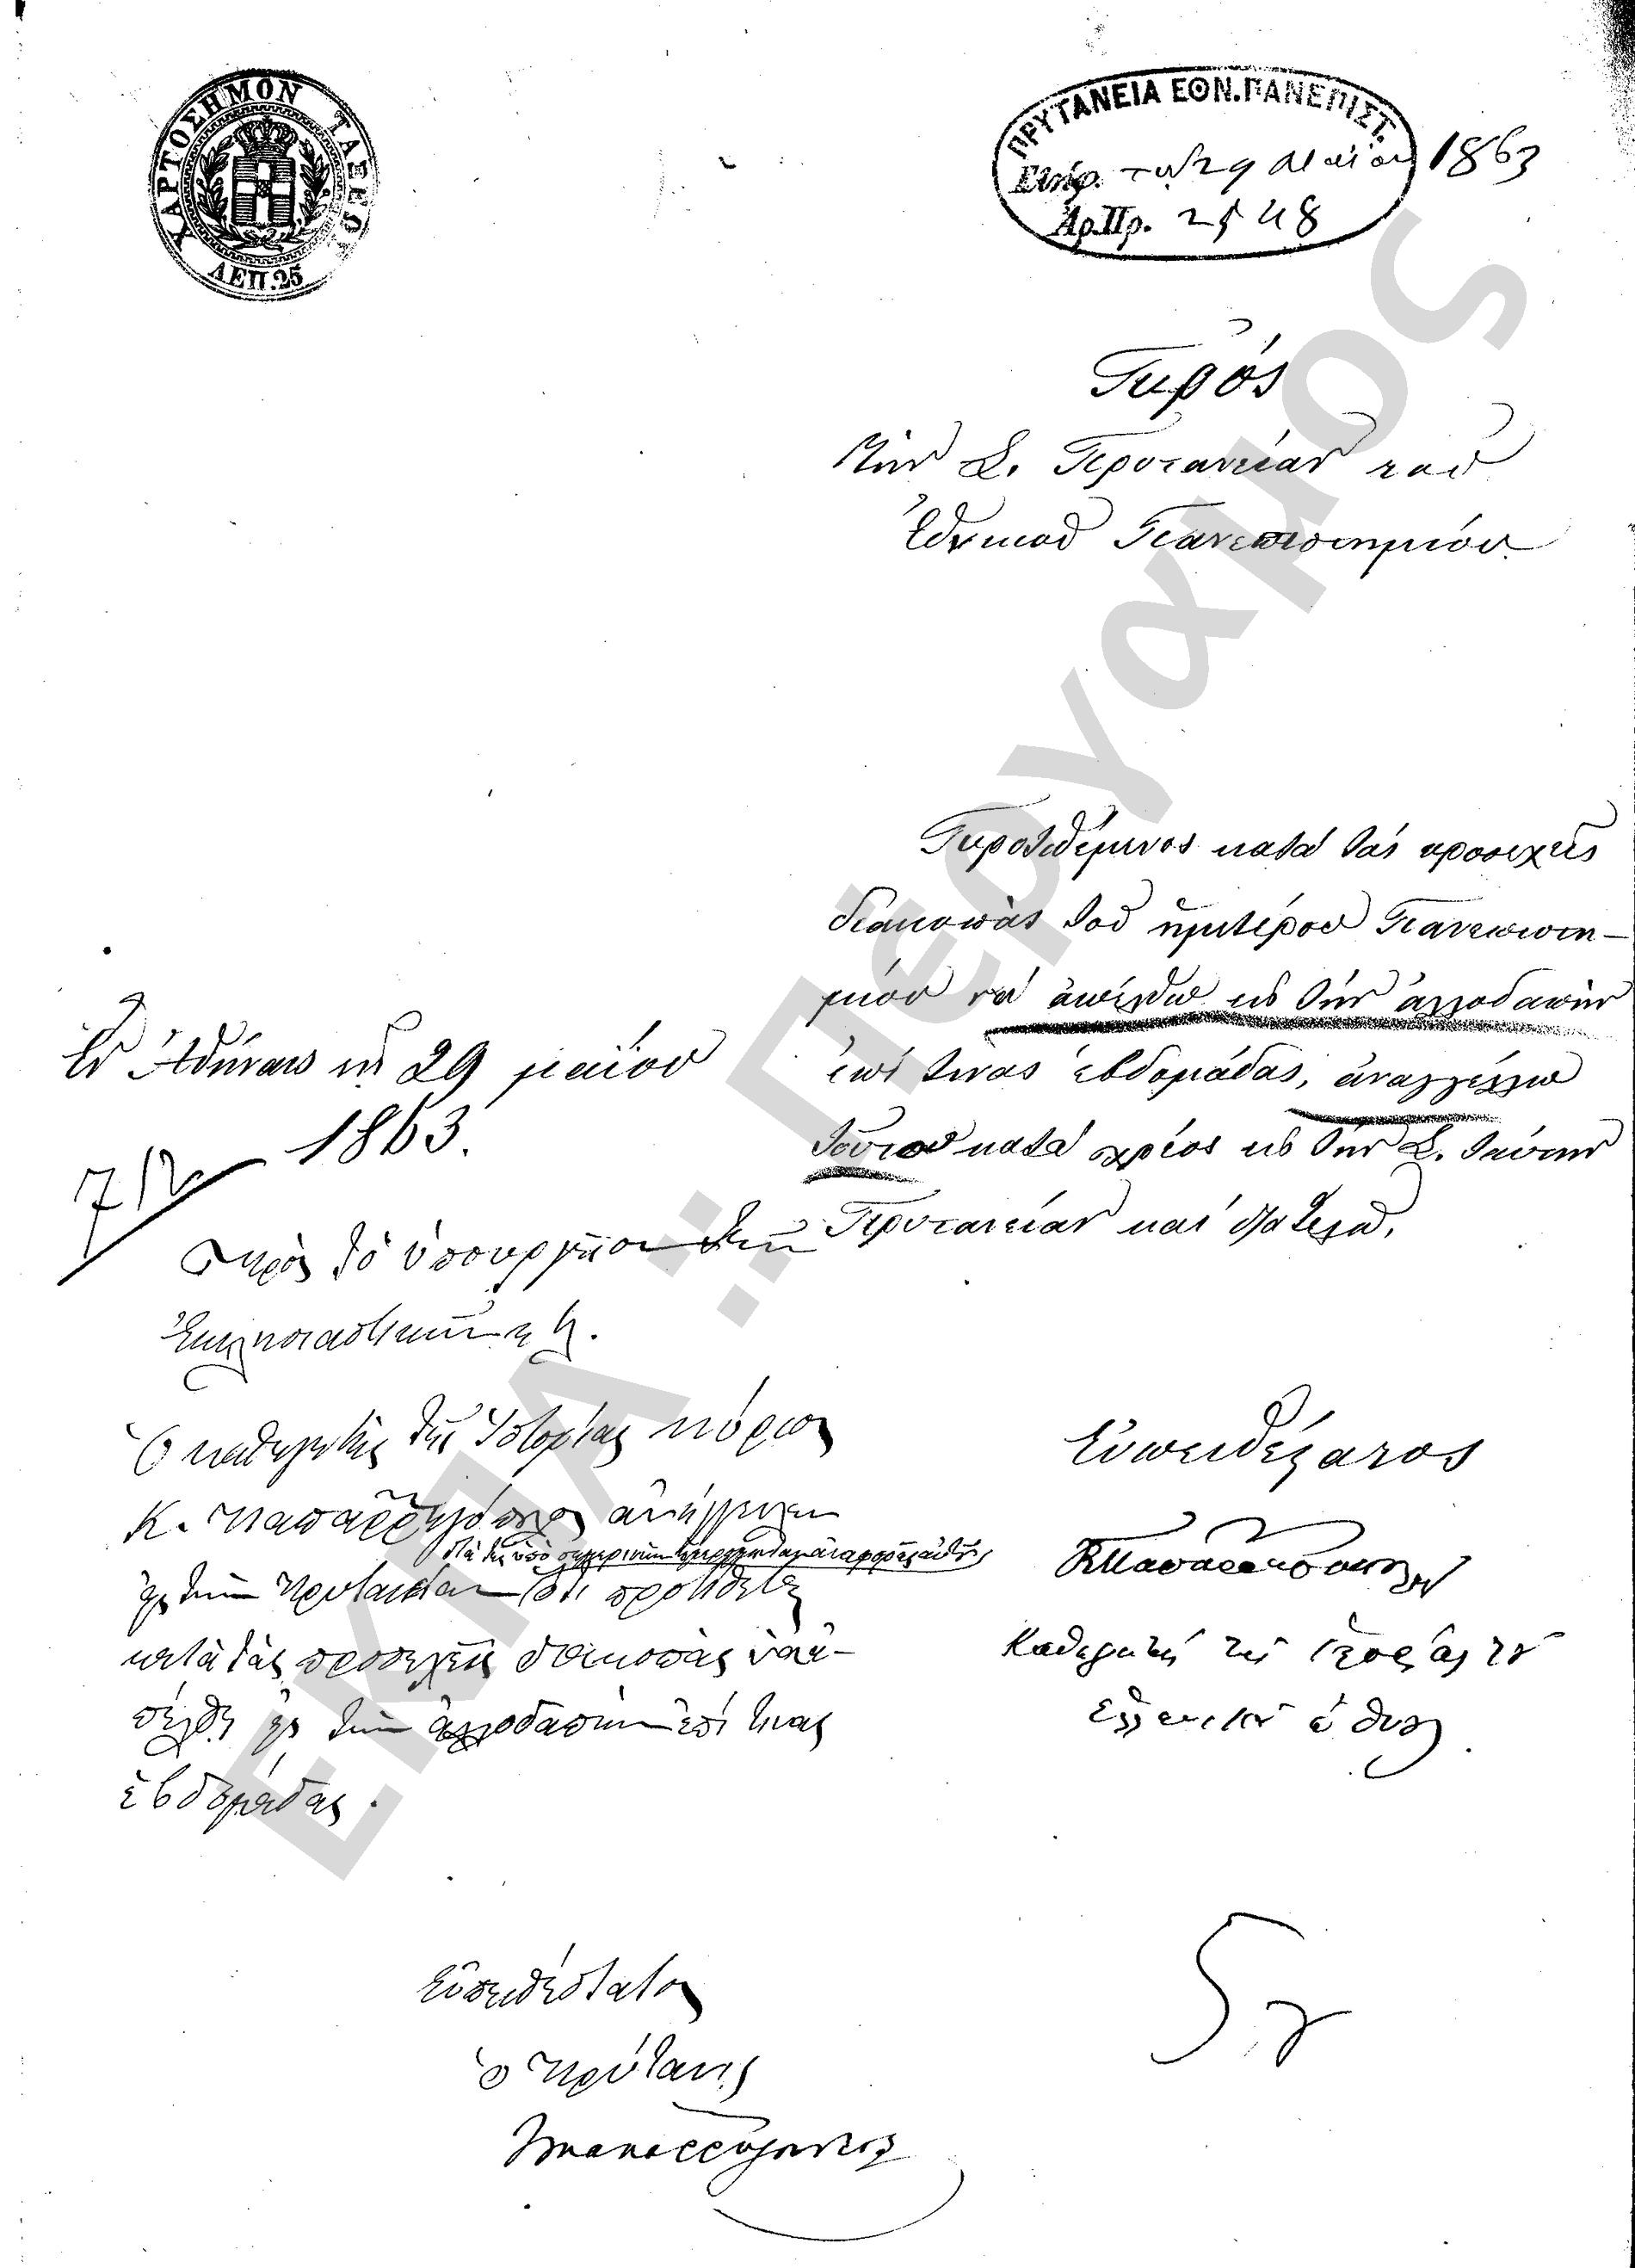 ΧΑΡΤΟΣΗΜΟΝ ΤΑΞΕΩΣ
ΛΕΠ. 25
ΠΡΥΤΑΝΕΙΑ ΕΘΝ. ΠΑΝΕΠΙΣΤ.
τῇ 29 Μαΐου 1863
Ἀρ.Πρ. 2548
Πρὸς
τὴν Σ. Πρυτανείαν τοῦ
Ἐθνικοῦ Πανεπιστημίου.
Προτιθέμενος κατὰ τὰς προσεχεῖς
διακοπὰς τοῦ ἡμετέρου Πανεπιστη-
μίου νὰ ἀπέλθω εἰς τὴν ἀλλοδαπὴν
ἐπί τινας ἑβδομάδας, ἀναγγέλλω
τοῦτο κατὰ χρέος εἰς τὴν Σ. ταύτην
Πρυτανείαν καὶ διατελῶ,
Εὐπειθέστατος
Κ Παπαρρηγόπουλος
Καθηγητὴς τῆς ἱστορίας τοῦ
ἑλληνικοῦ ἔθνους.
Ἐν Ἀθήναις τῇ 29 μαΐου
1863.
Πρὸς τὸ ὑπουργεῖον τῶν
Ἐκκλησιαστικῶν κτλ.
Ὁ καθηγητὴς τῆς Ἱστορίας κύριος
Κ. Παπαρρηγόπουλος ἀνήγγειλεν
εἰς τὴν Πρυτανείαν ὅτι προτίθεται
κατὰ τὰς προσεχεῖς διακοπὰς νὰ ἀ-
πέλθῃ εἰς τὴν ἀλλοδαπὴν ἐπί τινας
ἑβδομάδας.
Εὐπειθέστατος
ὁ Πρύτανις
ΕΚΠΑ :: Πέργαμος